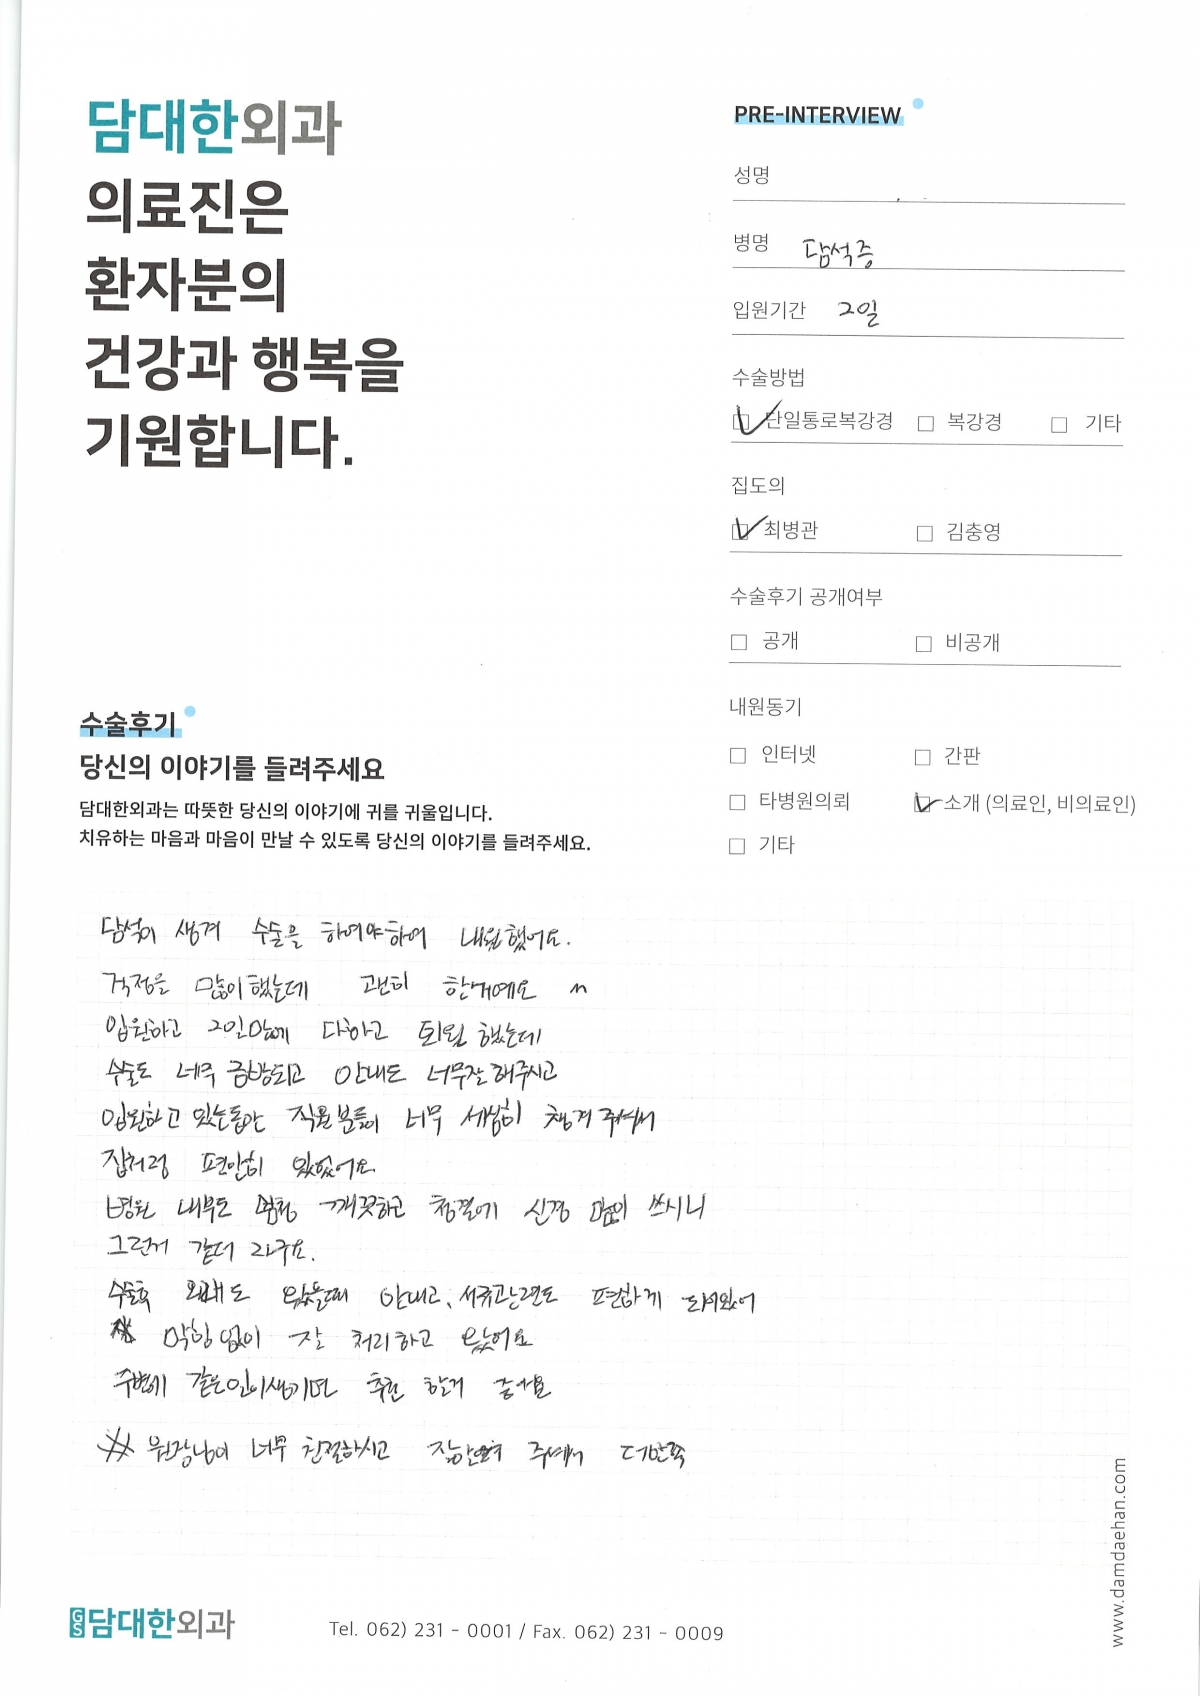 담대한외과
의료진은
환자분의
건강과 행복을
기원합니다.
PRE-INTERVIEW
성명
병명 담석증
입원기간 2일
수술방법
단일통로복강경 복강경 기타
집도의
최병관 김충영
수술후기 공개여부
공개 비공개
내원동기
인터넷 간판
타병원의뢰 소개 (의료인, 비의료인)
기타
수술후기
당신의 이야기를 들려주세요
담대한외과는 따뜻한 당신의 이야기에 귀를 귀울입니다.
치유하는 마음과 마음이 만날 수 있도록 당신의 이야기를 들려주세요.
담석이 생겨 수술을 하여야하여 내원했어요.
걱정을 많이했는데 괜히 한거예요 ^^
입원하고 2일만에 다하고 퇴원 했는데
수술도 너무 금방되고 안내도 너무잘해주시고
입원하고 있는동안 직원분들이 너무 세심히 챙겨주셔서
집처럼 편안히 있었어요
병원 내부도 엄청 깨끗하고 청결에 신경 많이 쓰시니
그런거 같더라구요.
수술후 외래도 있을때 안내고, 서류관련도 편하게 되어있어
막힘없이 잘 처리하고 왔어요
주변에 같은인이생기면 추천 할거 같아요
※ 원장님이 너무 친절하시고 집안여 주셔서 더만족
GS담대한외과
Tel. 062) 231 - 0001 / Fax. 062) 231 - 0009
www.damdaehan.com